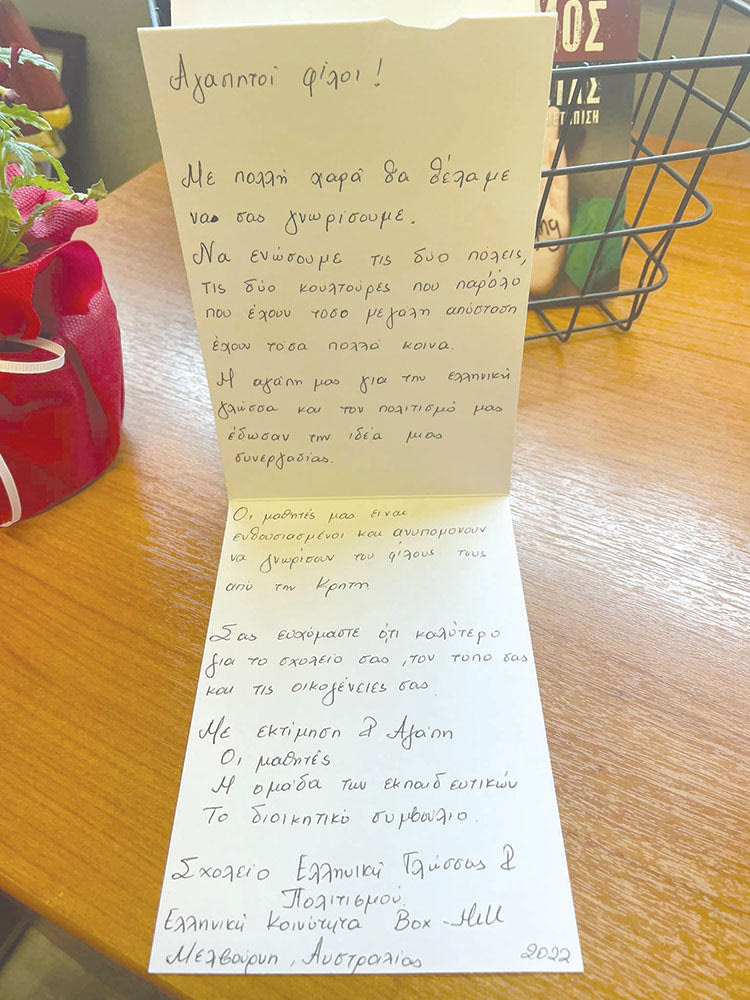 Αγαπητοί φίλοι!
Με πολλή χαρά θα θέλαμε
να σας γνωρίσουμε.
Να ενώσουμε τις δύο πόλεις,
τις δύο κουλτούρες που παρόλο
που έχουν τόσο μεγάλη απόσταση
έχουν τόσα πολλά κοινά.
Η αγάπη μας για την ελληνική
γλώσσα και τον πολιτισμό μας
έδωσαν την ιδέα μιας
συνεργασίας.
Οι μαθητές μας είναι
ενθουσιασμένοι και ανυπομονουν
να γνωρίσουν του φίλους τους
από την Κρήτη.
Σας ευχόμαστε ό,τι καλύτερο
για το σχολείο σας, τον τόπο σας
και τις οικογένειες σας.
Με εκτίμηση & Αγάπη
Οι μαθητές
Η ομάδα των εκπαιδευτικών
Το διοικητικό συμβούλιο.
Σχολείο Ελληνική Γλώσσας &
Πολιτισμού.
Ελληνική Κοινότητα Box-Hill
Μελβούρνη, Αυστραλίας 2022
ΟΣ
ΙΑΣ
ΜΕΤΩΠΙΣΗ
ng